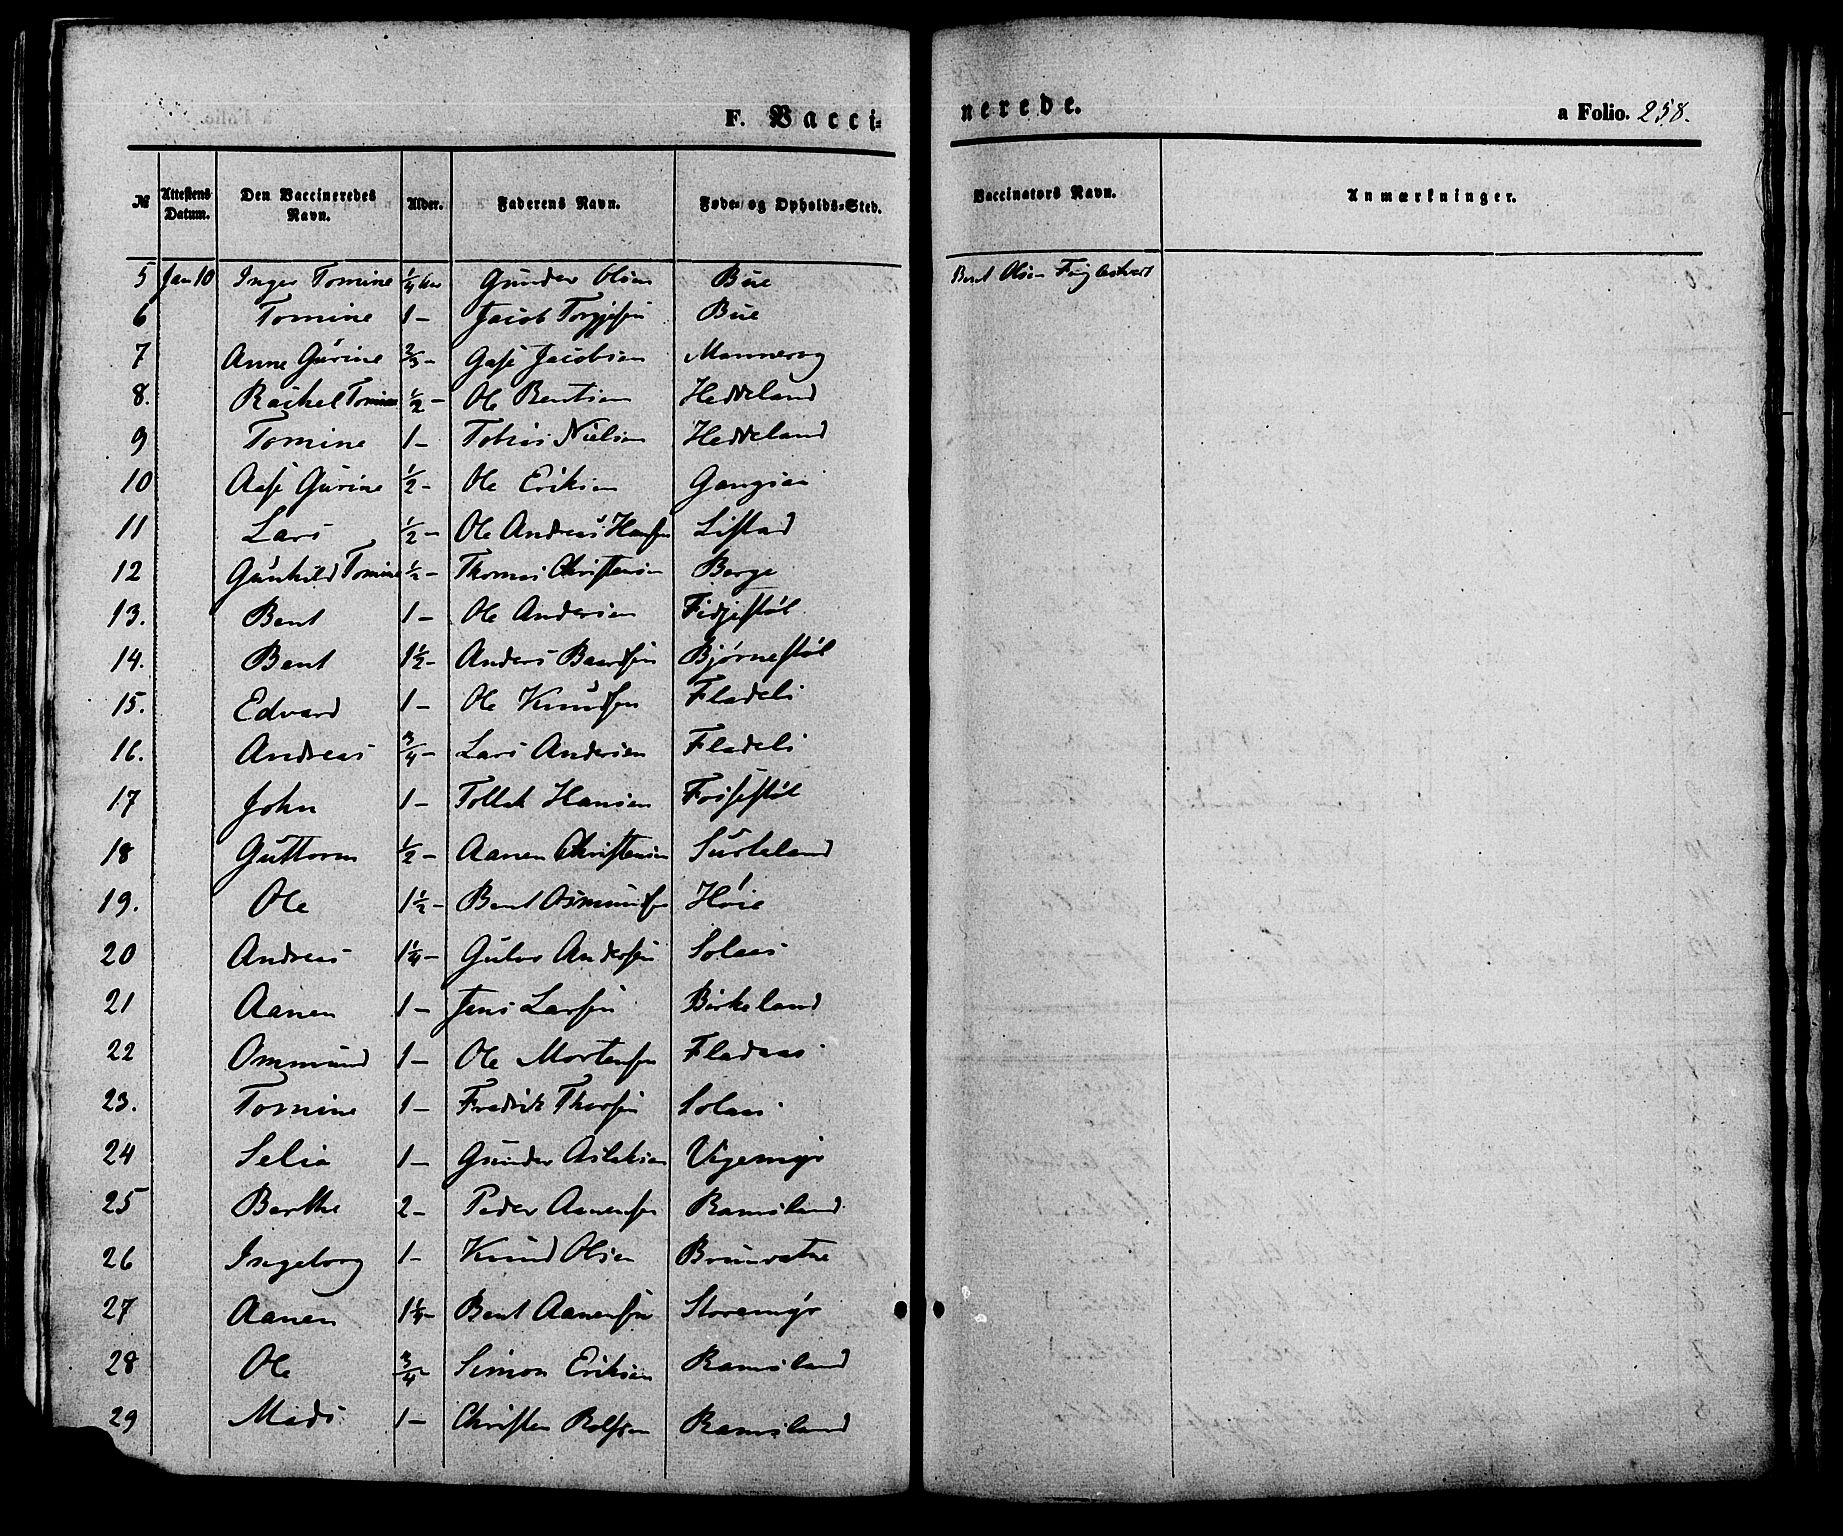 F. Vaccinerede. a Folio. 258.
№ Attestens Datum. Den Vaccineredes Navn. Alder. Faderens Navn. Føde- og Opholds-Sted. Vaccinators Navn. Anmærkninger.
5 Jan 10 Inger Tomine 1/4 Gunder Olsen Bue Bent Olsen Fuglestvedt
6 Tomine 1 – Jacob Torgjesen Bue
7 Anne Gurine 2/3 – Jacobsen
8. Rachel Tomine 1/2 – Ole Bentsen Heddeland
9 Tomine 1 – Tobias Nielsen Heddeland
10 Aase Gurine 1/2 – Ole Eriksen
11 Lars 1/2 – Ole Andreas Hansen Listad
12 Gunhild Tomine 1/2 – Thomas Christensen Berge
13. Bent 1 – Ole Andersen Fidjestøl
14. Bent 1 1/2 – Anders Baardsen Bjørnestøl
15. Edvard 1 – Ole Knudsen Fladeli
16. Andreas 3/4 – Lars Andersen Fladeli
17 John 1 – Tollak Hansen Fossestøl
18 Guttorm 1/2 – Aanen Christensen Surteland
19. Ole 1 1/2 – Bent Osmundsen Høie
20 Andreas 1 1/4 – Gulov Andersen Solaas
21 Aanen 1 – Jens Larsen Birkeland
22 Ommund 1 – Ole Mortensen Fladaas
23. Tomine 1 – Fredrik Thorsen Solaas
24 Selia 1 – Gunder Aslaksen Vigemyr
25 Berthe 2 – Peder Aanensen Ramsland
26 Ingeborg 1 – Knud Olsen Brunvatne
27 Aanen 1 1/4 – Bent Aanensen Storemyr
28 Ole 3/4 – Simon Eriksen Ramsland
29 Mads 1 – Christen Rolfsen Ramsland